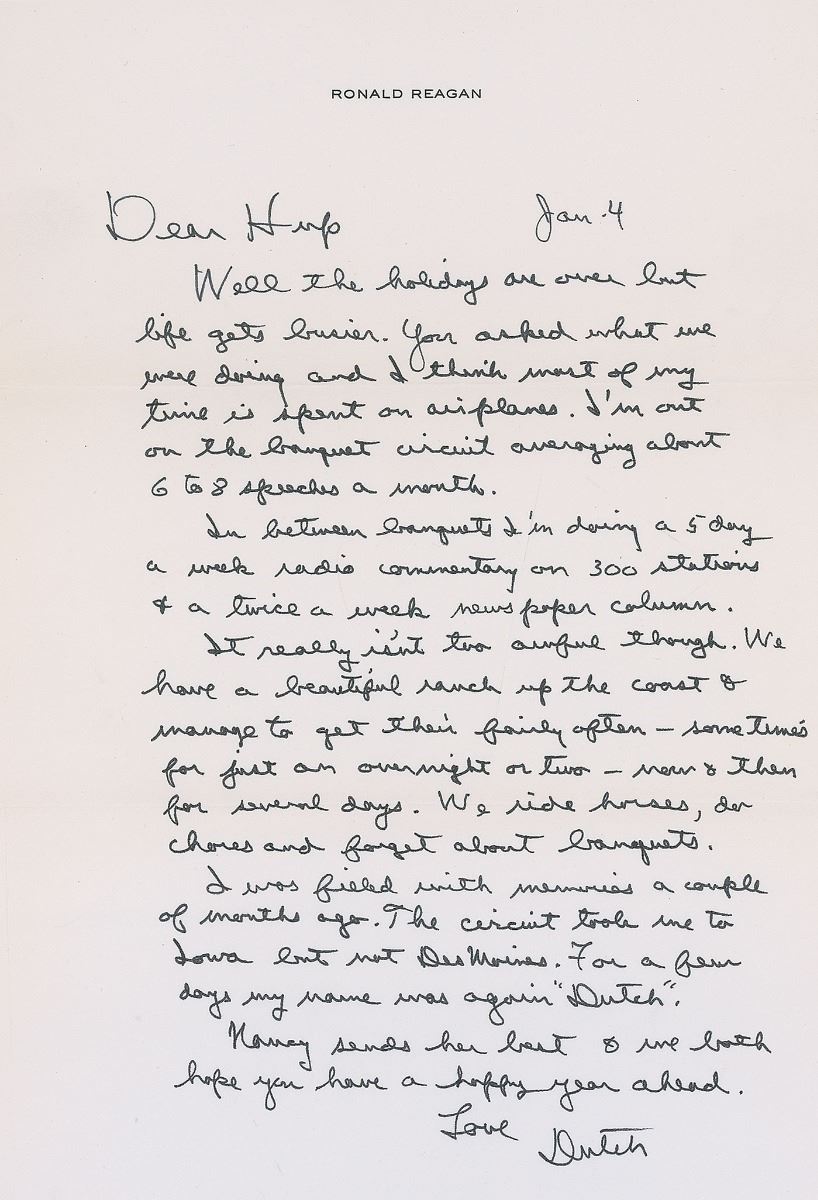 RONALD REAGAN
Dear Hup Jan. 4
Well the holidays are over but
life gets busier. You asked what we
were doing and I think most of my
time is spent on airplanes. I'm out
on the banquet circuit averaging about
6 to 8 speeches a month.
In between banquets I'm doing a 5 day
a week radio commentary on 300 stations
& a twice a week newspaper column.
It really isn't too awful though. We
have a beautiful ranch up the coast &
manage to get their fairly often — sometimes
for just an overnight or two — now & then
for several days. We ride horses, do
chores and forget about banquets.
I was filled with memories a couple
of months ago. The circuit took me to
Iowa but not Des Moines. For a few
days my name was again "Dutch".
Nancy sends her best & we both
hope you have a happy year ahead.
Love
Dutch